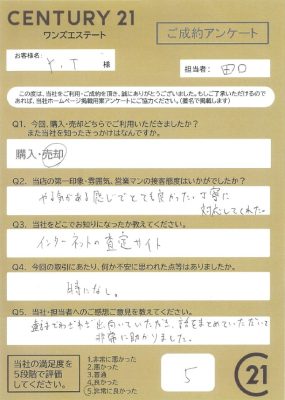 CENTURY 21
ワンズエステート
ご成約アンケート
お客様名:
Y.T 様
担当者: 田口
この度は、当社をご利用・ご成約を頂き、誠にありがとうございました。もしご了承いただけるので
あれば、当社ホームページ掲載用アンケートにご協力ください。(匿名で掲載します)
Q1. 今回、購入・売却どちらでご利用いただきましたか?
また当社を知ったきっかけはなんですか。
購入・売却
Q2. 当店の第一印象・雰囲気、営業マンの接客態度はいかがでしたか?
やる気がある感じでとても良かった。丁寧に
対応してくれた。
Q3. 当社をどこでお知りになったか教えてください。
インターネットの査定サイト
Q4. 今回の取引にあたり、何か不安に思われた点等はありましたか。
特になし。
Q5. 当社・担当者へのご感想ご意見を教えてください。
わざわざ出向いていただき、話をまとめていただいて
非常に助かりました。
当社の満足度を
5段階で評価
してください。
1.非常に悪かった
2.悪かった
3.普通
4.良かった
5.非常に良かった
5
C21